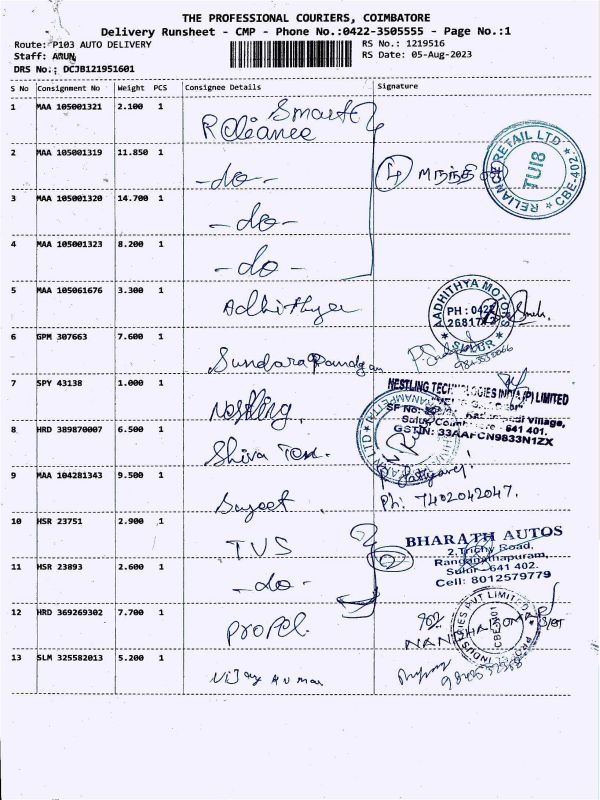 THE PROFESSIONAL COURIERS, COIMBATORE
Delivery Runsheet - CMP - Phone No.:0422-3505555 - Page No.:1
Route: P103 AUTO DELIVERY RS No.: 1219516
Staff: ARUN RS Date: 05-Aug-2023
DRS No.: DCJB121951601
S No Consignment No Weight PCS Consignee Details Signature
1 MAA 105001321 2.100 1 Smart
Reliance
2 MAA 105001319 11.850 1 -do- 4
RELIANCE RETAIL LTD
TUI8
CBE-402.
3 MAA 105001320 14.700 1 -do-
4 MAA 105001323 8.200 1 -do-
5 MAA 105061676 3.300 1 Adhithya
AADHITHYA MOTORS
PH : 0422
SULUR
6 GPM 307663 7.600 1 Sundara Pandyan
7 SPY 43138 1.000 1 Nestling
NESTLING TECHNOLOGIES INDIA (P) LIMITED
SF No: Village,
Sulur, Coimbatore - 641 401.
GSTIN: 33AAFCN9833N1ZX
8 HRD 389870007 6.500 1 Shiva Tex.
9 MAA 104281343 9.500 1 Sujeet
Ph: 7402042047.
10 HSR 23751 2.900 1 TVS
BHARATH AUTOS
2,Trichy Road,
Ranganathapuram,
Sulur - 641 402.
Cell: 8012579779
11 HSR 23893 2.600 1 -do-
12 HRD 369269302 7.700 1 Propel
INDUSTRIES PVT LIMITED
13 SLM 325582013 5.200 1 Vijay Kumar